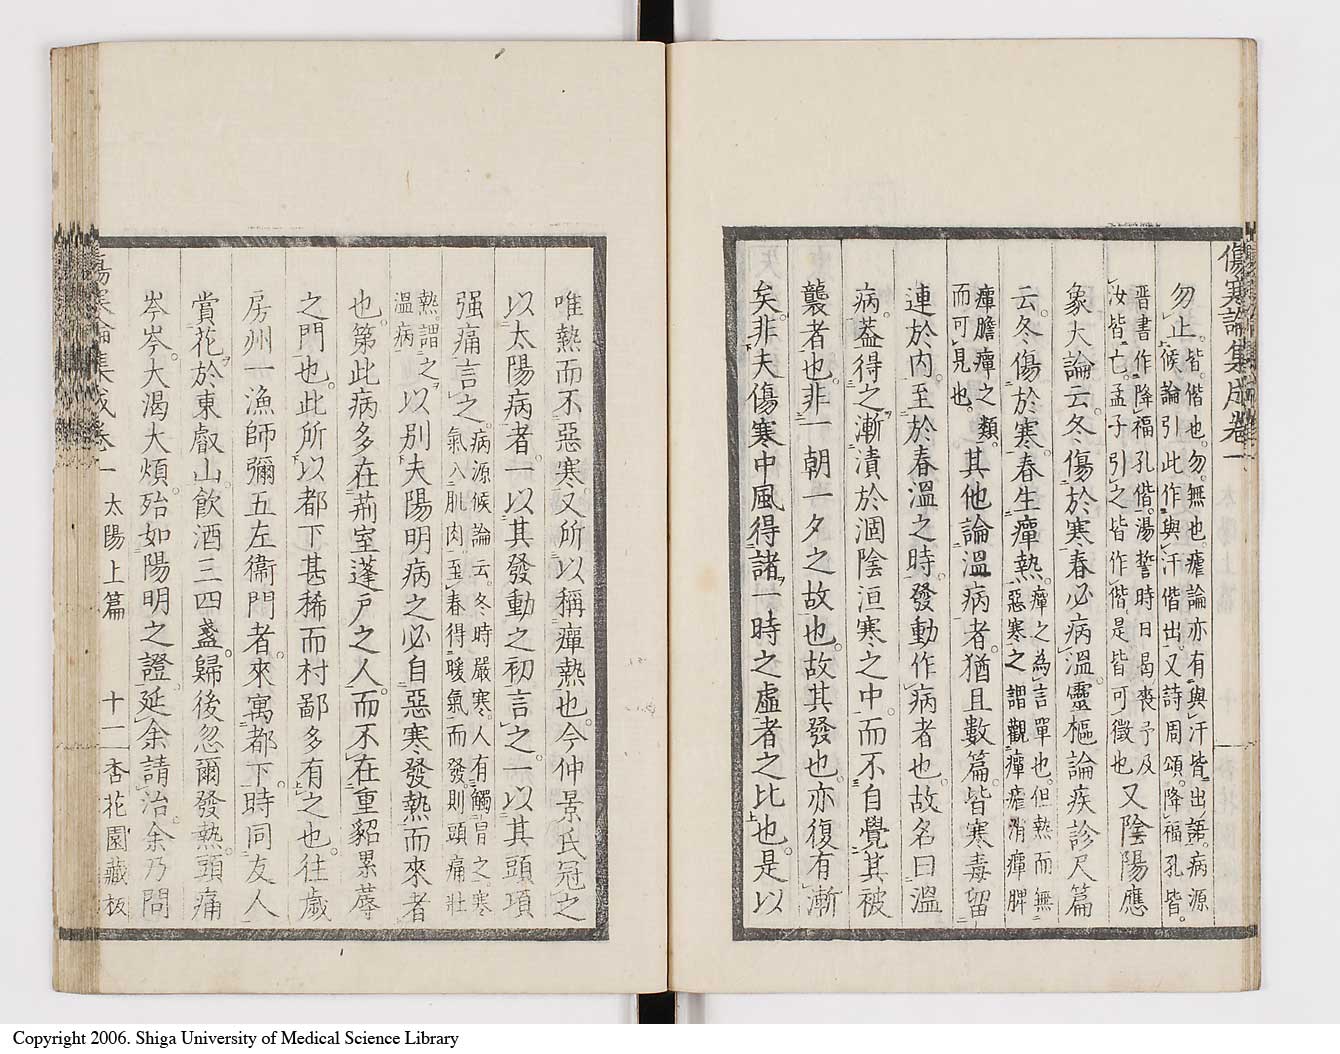 傷寒論集成卷一
勿止。皆。偕也。勿。無也。瘧論亦有與汗皆出語。病源
候論引此作與汗偕出。又詩周頌。降福孔皆。
晋書作降福孔偕。湯誓時日曷喪予及
汝皆亡。孟子引之皆作偕。是皆可徵也
又陰陽應
象大論云。冬傷於寒春必病溫。靈樞論疾診尺篇
云。冬傷於寒。春生癉熱。
癉之為言單也。但熱而無
惡寒之謂。觀癉瘧消癉脾
癉膽癉之類。
而可見也。
其他論溫病者。猶且數篇。皆寒毒留
連於內。至於春溫之時。發動作病者也。故名曰溫
病。葢得之漸漬於涸陰沍寒之中。而不自覺其被
襲者也。非一朝一夕之故也。故其發也。亦復有漸
矣。非夫傷寒中風得諸一時之虛者之比也。是以
唯熱而不惡寒。又所以稱癉熱也。今仲景氏冠之
以太陽病者。一以其發動之初言之。一以其頭項
强痛言之。
病源候論云。冬時嚴寒。人有觸冒之。寒
氣入肌肉。至春得暖氣而發。則頭痛壯
熱。謂之
溫病
以別夫陽明病之必自惡寒發熱而來者
也。第此病多在荊室蓬戶之人。而不在重貂累蓐
之門也。此所以都下甚稀而村鄙多有之也。往歲
房州一漁師彌五左衞門者。來寓都下。時同友人
賞花於東叡山。飮酒三四盞。歸後忽爾發熱。頭痛
岑岑。大渴大煩。殆如陽明之證。延余請治。余乃問
傷寒論集成卷一 太陽上篇 十二 杏花園藏板